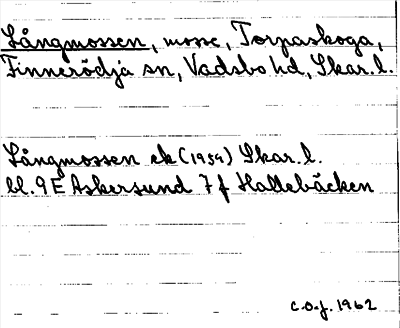 Långmossen, mosse, Torpaskoga,
Finnerödja sn, Vadsbo hd, Skar. l.
Långmossen ek (1959) Skar. l.
bl. 9 E Askersund 7 f Hallebäcken
C.O.J. 1962